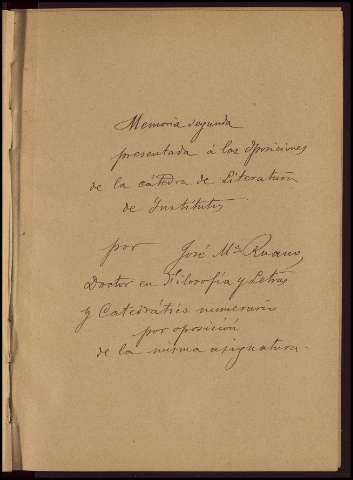 Memoria segunda
presentada á las Oposiciones
de la cátedra de Literatura
de Institutos
por José Mª Ruano,
Doctor en Filosofía y Letras
y Catedrático numerario
por oposición
de la misma asignatura.